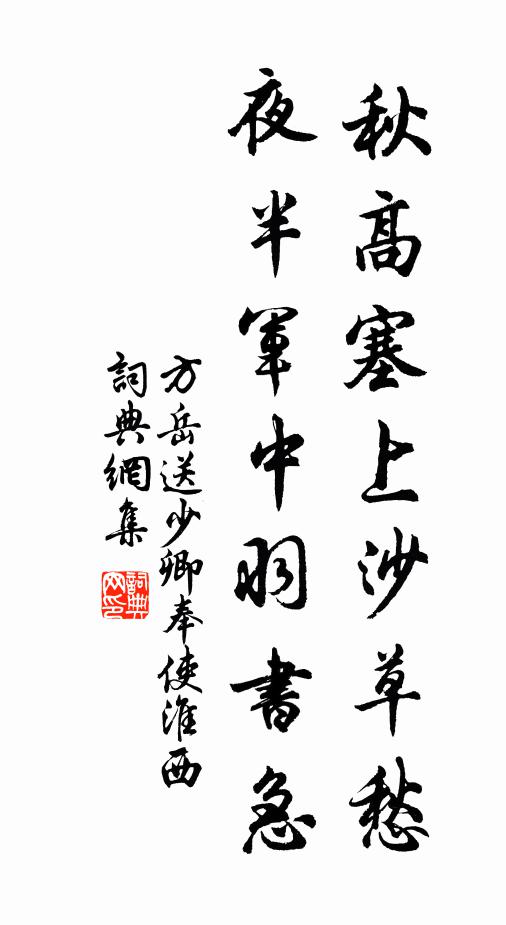 秋高塞上沙草愁
夜半軍中羽書急
方岳送少卿奉使淮西
詞典網集
詞典網印